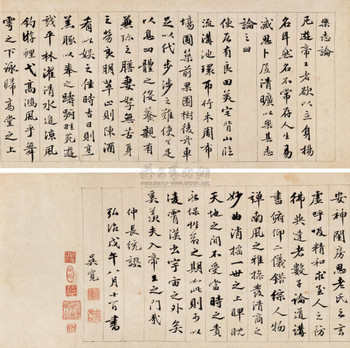 樂志論
凡遊帝王者欲以立身揚
名耳然名不常存人生易
滅思卜居清曠以樂其志
論之曰
使居有良田美宅背山臨
流溝池環布竹木周布
場圃築前果園樹後舟車
足以代步涉之難使令足
以息四體之役養親有
兼珍之膳妻孥無苦身
之勞良朋萃止則陳酒
肴以娛之佳時吉日則烹
羔豚以奉之躊躇畦苑遊
戲平林濯清水追涼風
釣游鯉弋高鴻風乎舞
雩之下詠歸高堂之上
安神閨房思老氏之玄
虛呼吸精和求至人之彷
彿與達者數子論道講
書俯仰二儀錯綜人物
彈南風之雅操發清商之
妙曲逍遙世之上睥睨
天地之間不受當時之責
永保性命之期如此則可以
凌霄漢出宇宙之外矣
豈羨夫入帝王之門哉
仲長統譔
弘治戊午八月十日書
吳寬